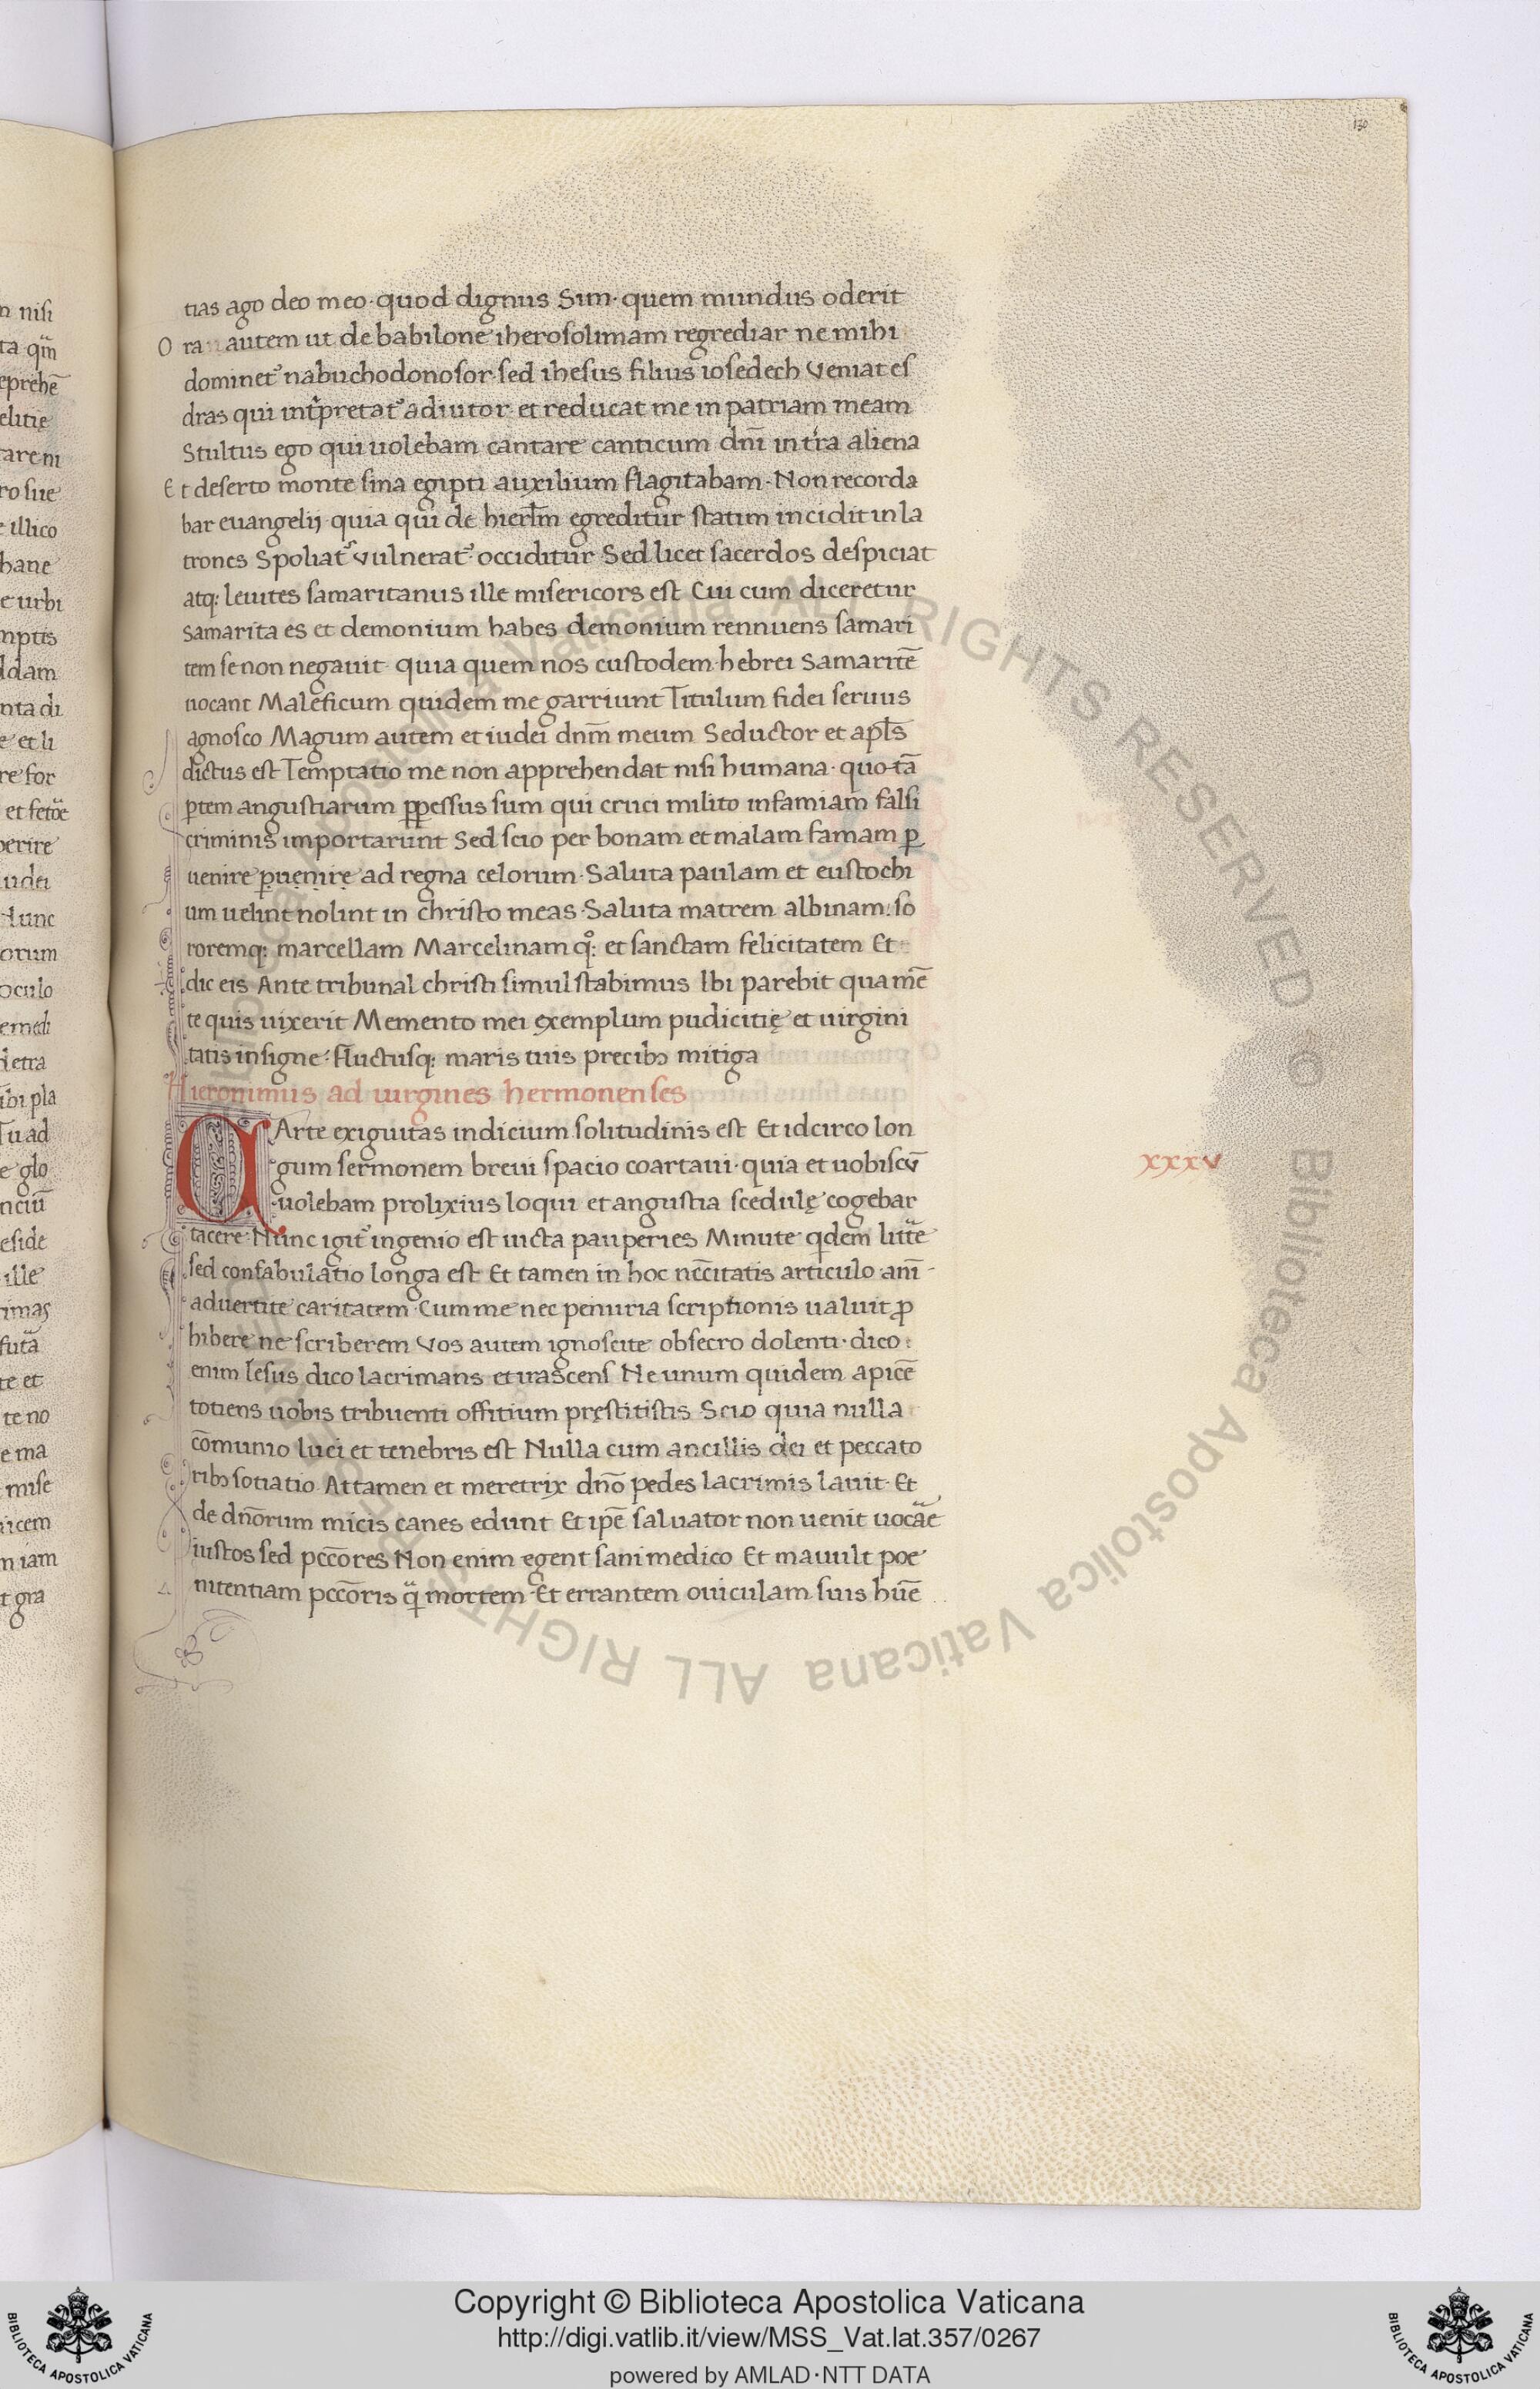 130
tias ago deo meo· quod dignus sim· quem mundus oderit
Ora autem ut de babilone iherosolimam regrediar ne mihi
dominet᷒ nabuchodonosor· sed ihesus filius iosedech veniat es
dras qui int̄pretat᷒ adiutor· et reducat me in patriam meam
Stultus ego qui uolebam cantare canticum dn̄i in t̄ra aliena
Et deserto monte sina egipti auxilium flagitabam· Non recorda
bar euangelij· quia qui de hierl̄m egreditur statim incidit in la
trones Spoliat᷒ vulnerat᷒ occiditur Sed licet sacerdos despiciat
atq: leuites samaritanus ille misericors est Cui cum diceretur
samarita es et demonium habes demonium rennuens samari
tem se non negauit· quia quem nos custodem hebrei Samaritē
uocant Maleficum quidem me garriunt Titulum fidei seruus
agnosco Magum autem et iudei dn̄m meum Seductor et apl̄s
dictus est Temptatio me non apprehendat nisi humana· quotā
ꝑtem angustiarum ꝑpessus sum qui cruci milito infamiam falsi
criminis importarunt Sed scio per bonam et malam famam ꝑ
uenire ꝑuenire ad regna celorum· Saluta paulam et eustochi
um uelint nolint in christo meas· Saluta matrem albinam: so
roremq: marcellam Marcelinam qͦ: et sanctam felicitatem Et
dic eis Ante tribunal christi simul stabimus Ibi parebit qua mē
te quis uixerit Memento mei exemplum pudicitię et uirgini
tatis insigne· fluctusq: maris tuis precibꝫ mitiga
Hieronimus ad uirgines hermonenses
CArte exiguitas indicium solitudinis est Et idcirco lon
gum sermonem breui spacio coartaui· quia et uobiscū
uolebam prolixius loqui et angustia scedulę cogebar
tacere· Nunc igit᷒ ingenio est uicta pauperies Minute qdem litt̄e
sed confabulatio longa est Et tamen in hoc nēcitatis articulo anī
aduertite caritatem Cum me nec penuria scriptionis ualuit ꝓ
hibere ne scriberem Vos autem ignoscite obsecro dolenti· dico
enim lesus dico lacrimans et irascens Ne unum quidem apicē
totiens uobis tribuenti offitium pręstitistis Scio quia nulla
cōmunio luci et tenebris est Nulla cum ancillis dei et peccato
ribꝫ sotiatio Attamen et meretrix dn̄o pedes lacrimis lauit· Et
de dn̄orum micis canes edunt Et ip̄e saluator non uenit uocāe
iustos sed pcc̄ores Non enim egent sani medico Et mauult poe
nitentiam pcc̄oris q̄ mortem· Et errantem ouiculam suis hu̅e
xxxv
Copyright © Biblioteca Apostolica Vaticana
http://digi.vatlib.it/view/MSS_Vat.lat.357/0267
powered by AMLAD·NTT DATA